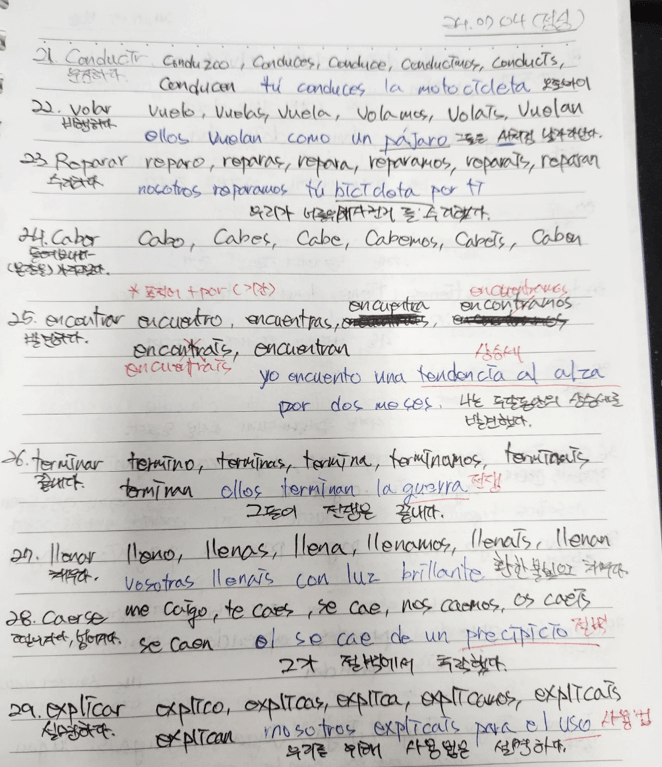 24.07.04 (정성)
21. Conducir conduzco, Conduces, Conduce, Conducimos, conducís,
운전하다. Conducen tú conduces la motocicleta 오토바이
22. volar vuelo, vuelas, vuela, volamos, voláis, vuelan
비행하다. ellos vuelan como un pájaro 그들은 새처럼 날아간다.
23 Reparar reparo, reparas, repara, reparamos, reparáis, reparan
수리하다. nosotros reparamos tú bicicleta por ti
우리가 너를 위해 자전거를 수리한다.
24. Caber Cabo, Cabes, Cabe, Cabemos, Cabéis, Caben
* 표지어 + por (기간)
encuentra encontramos encuentramos
25. encontrar encuentro, encuentras,
발견하다. encontráis, encuentran
encuentráis 상승세
yo encuento una tendencia al alza
por dos meses. 나는 두달동안의 상승세를
발견했다.
26. terminar termino, terminas, termina, terminamos, termináis
끝내다. terminan ellos terminan la guerra 전쟁
그들이 전쟁은 끝내다.
27. llenar lleno, llenas, llena, llenamos, llenáis, llenan
채우다. vosotras llenáis con luz brillante 환한 불빛으로 채우다.
28. Caerse me caigo, te caes, se cae, nos caemos, os caéis
se caen el se cae de un precipicio 절벽
그가 절벽에서 추락했다.
29. explicar explico, explicas, explica, explicamos, explicáis
설명하다. explican nosotros explicáis para el uso 사용법
우리를 위해 사용법은 설명하다.